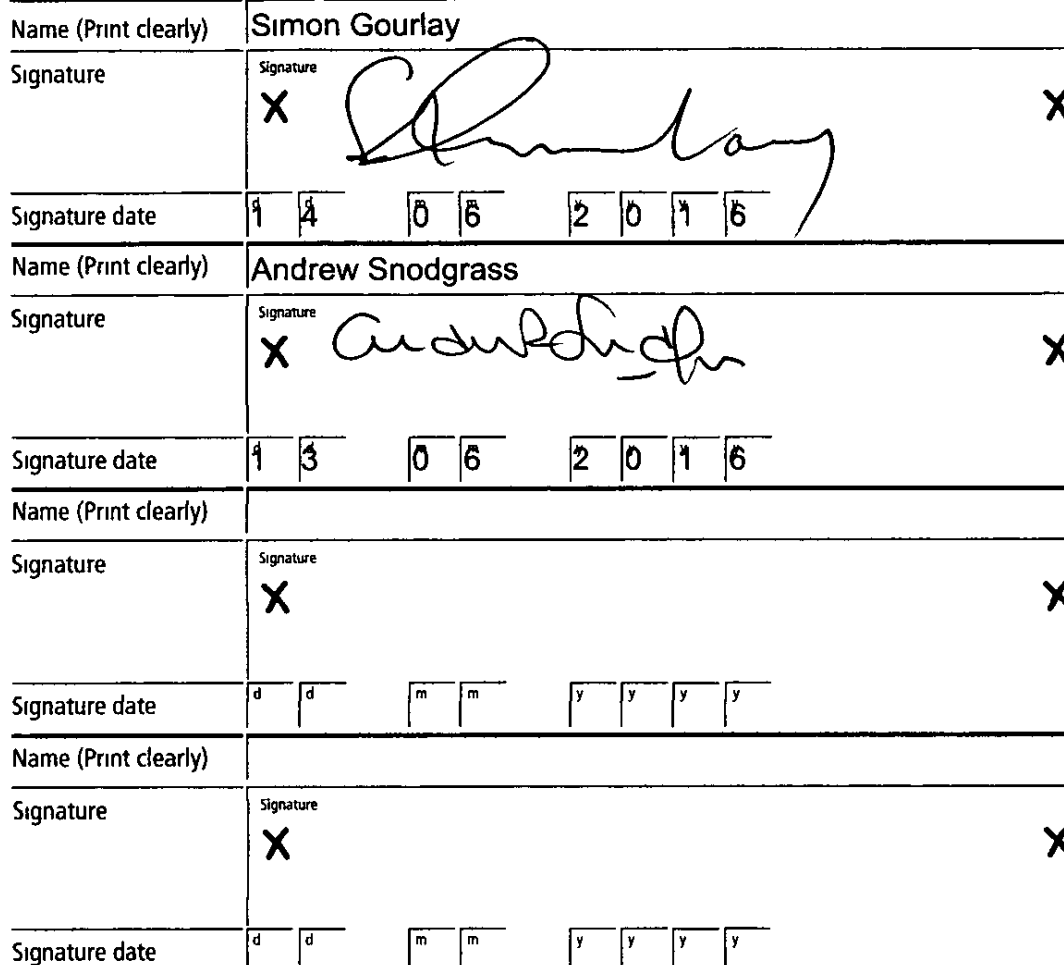 Name (Print clearly) Simon Gourlay
Signature Signature
X X
Signature date 14 06 2016
Name (Print clearly) Andrew Snodgrass
Signature Signature
X X
Signature date 13 06 2016
Name (Print clearly)
Signature Signature
X X
Signature date d d m m y y y y
Name (Print clearly)
Signature Signature
X X
Signature date d d m m y y y y